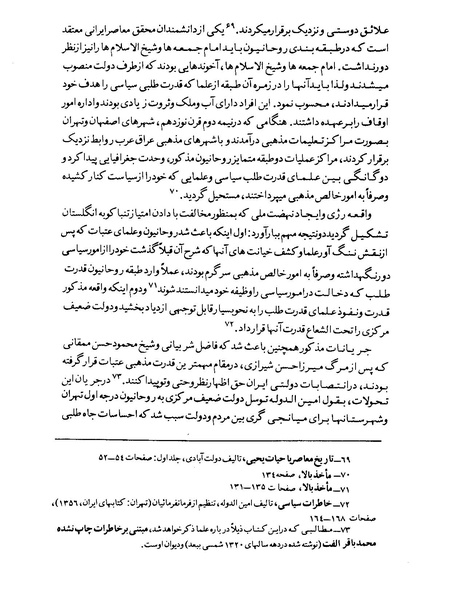 علائق دوستی و نزدیک برقرار میکردند.۶۹ یکی از دانشمندان محقق معاصر ایرانی معتقد
است که در طبقه بندی روحانیون باید امام جمعه ها و شیخ الاسلام ها را نیز از نظر
دور نداشت. امام جمعه ها و شیخ الاسلام ها، آخوندهایی بودند که از طرف دولت منصوب
میشدند و لذا باید آنها را در زمره آن طبقه از علما که قدرت طلبی سیاسی را هدف خود
قرار میدادند، محسوب نمود. این افراد دارای آب و ملک و ثروت زیادی بودند و اداره امور
اوقاف را بر عهده داشتند. هنگامی که در نیمه دوم قرن نوزدهم، شهرهای اصفهان و تهران
بصورت مراکز تعلیمات مذهبی در آمدند و با شهرهای مذهبی عراق عرب روابط نزدیک
برقرار کردند، مراکز عملیات دو طبقه متمایز روحانیون مذکور، وحدت جغرافیایی پیدا کرد و
دوگانگی بین علمای قدرت طلب سیاسی و علمایی که خود را از سیاست کنار کشیده
و صرفاً به امور خالص مذهبی میپرداختند، مستحیل گردید.۷۰
واقعه رژی و ایجاد نهضت ملی که بمنظور مخالفت با دادن امتیاز تنباکو به انگلستان
تشکیل گردید دو نتیجه مهم ببار آورد: اول اینکه باعث شد روحانیون و علمای عتبات که پس
از نقش ننگ آور علما و کشف خیانت های آنها که شرح آن قبلاً گذشت خود را از امور سیاسی
دور نگهداشته و صرفاً به امور خالص مذهبی سرگرم بودند، عملاً وارد طبقه روحانیون قدرت
طلب که دخالت در امور سیاسی را وظیفه خود میدانستند شوند۷۱ و دوم اینکه واقعه مذکور
قدرت و نفوذ علمای قدرت طلب را به نحو بسیار قابل توجهی ازدیاد بخشید و دولت ضعیف
مرکزی را تحت الشعاع قدرت آنها قرار داد.۷۲
جریانات مذکور همچنین باعث شد که فاضل شربیانی و شیخ محمود حسن ممقانی
که پس از مرگ میرزا حسن شیرازی، در مقام مهمترین قدرت مذهبی عتبات قرار گرفته
بودند، در انتصابات دولتی ایران حق اظهار نظر و حتی وتو پیدا کنند.۷۳ در جریان این
تحولات، بقول امین الدوله توسل دولت ضعیف مرکزی به روحانیون درجه اول تهران
و شهرستانها برای میانجی گری بین مردم و دولت سبب شد که احساسات جاه طلبی
۶۹ــ تاریخ معاصر یا حیات یحیی، تالیف دولت آبادی، جلد اول: صفحات ۵۴ــ۵۲
۷۰ــ مأخذ بالا، صفحه ۱۳۴
۷۱ــ مأخذ بالا، صفحات ۱۳۵ــ۱۳۱
۷۲ــ خاطرات سیاسی، تالیف امین الدوله، تنظیم از فرمانفرمائیان (تهران: کتابهای ایران، ۱۳۵۶)،
صفحات ۱۶۸ــ۱۶۴
۷۳ــ مطالبی که در این کتاب ذیلاً در باره علما ذکر خواهد شد، مبتنی بر خاطرات چاپ نشده
محمد باقر الفت (نوشته شده در دهه سالهای ۱۳۲۰ شمسی ببعد) و دیوان اوست.